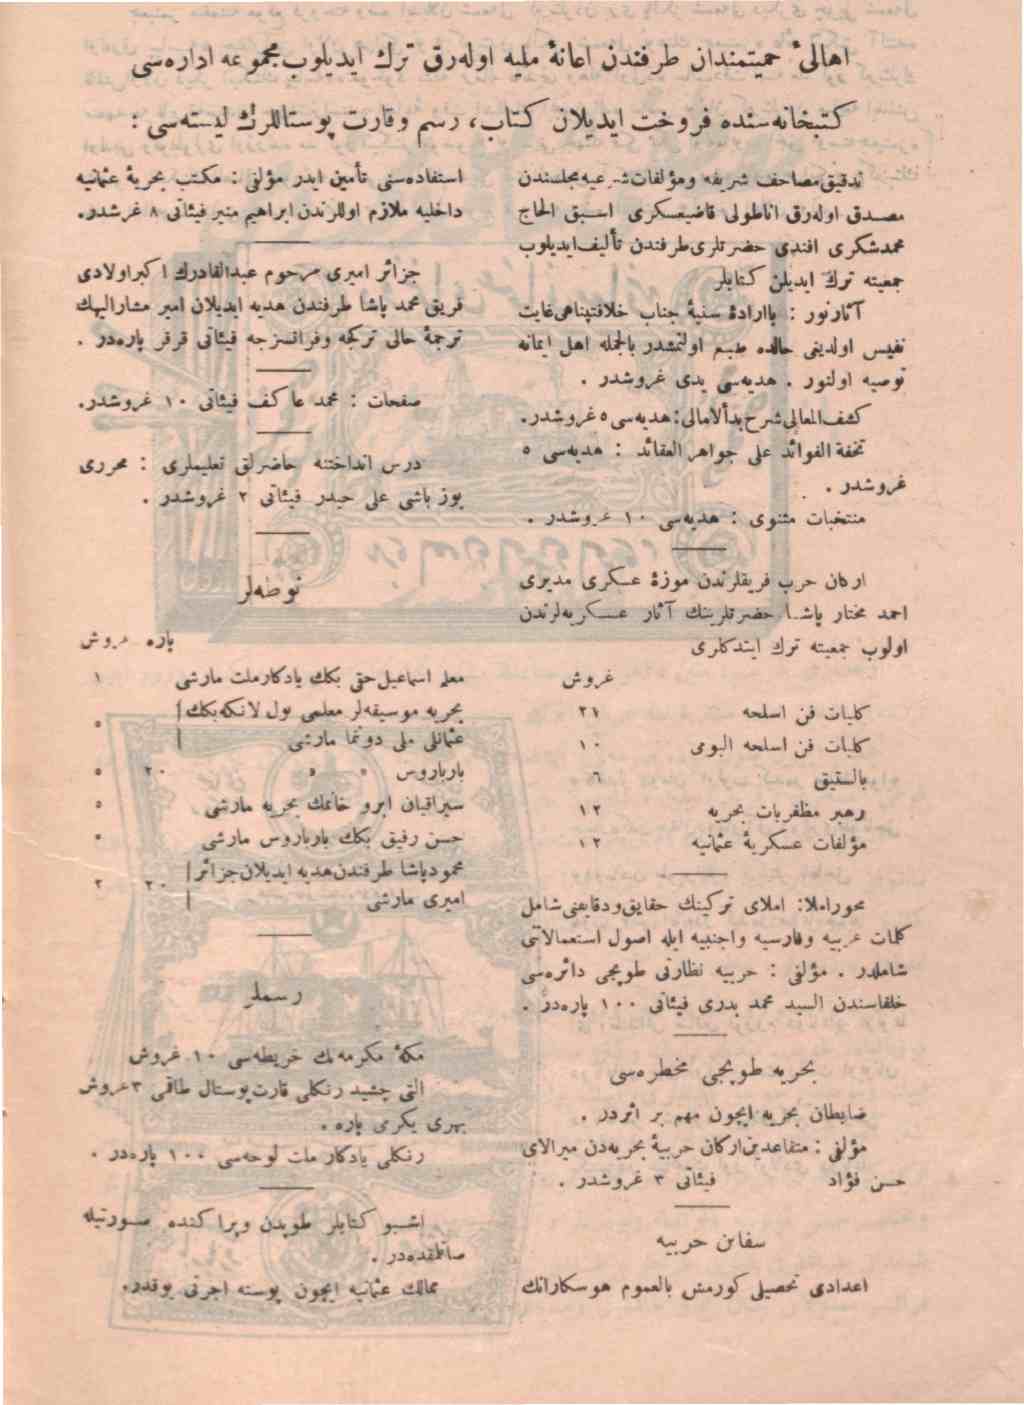 اهالئ حميتمندان طرفندن اعانهٔ مليه اوله‌رق ترك ايديلوب مجموعه اداره‌سى
كتبخانه‌سنده فروخت ايديلان كتاب، رسم وقارت پوستاللرك ليسته‌سى :
تدقيق مصاحف شريفه ومؤلفات شرعيه مجلسندن
مصدق اوله‌رق اناطولى قاضيعسكرى اسبق الحاج
محمدشكرى افندى حضرتلرى طرفندن تأليف ايديلوب
جمعيته ترك ايديلن كتابلر
آثارنور : باارادهٔ سنيهٔ جناب خلافتپناهى غايت
نفيس اولديغى حالده طبع اولنمشدر بالجمله اهل ايمانه
توصيه اولنور . هديه‌سى يدى غروشدر .
كشف المعالى شرح بدأ الامالى : هديه‌سى ٥ غروشدر.
تحفة الفوائد على جواهر العقائد : هديه‌سى ٥
غروشدر .
منتخبات مثنوى : هديه‌سى ١٠ غروشدر .
اركان حرب فريقلرندن موزهٔ عسكرى مديرى
احمد مختار پاشا حضرتلرينك آثار عسكريه‌لرندن
اولوب جمعيته ترك ايتدكلرى
غروش
كليات فن اسلحه ٢١
كليات فن اسلحه البومى ١٠
بالستيق ٦
رهبر مظفريات بحريه ١٢
مؤلفات عسكريهٔ عثمانيه ١٢
محور املا: املاى تركينك حقايق ودقايقنى شامل
كلمات عربيه وفارسيه واجنبيه ايله اصول استعمالاتى
شاملدر . مؤلفى : حربيه نظارتى طوپجى دائره‌سى
خلفاسندن السيد محمد بدرى فيئاتى ١٠٠ پاره‌در .
بحريه طوپجى مخطره‌سى
ضابطان بحريه ايچون مهم بر اثردر .
مؤلفى : متقاعدين اركان حربيهٔ بحريه‌دن ميرالاى
حسن فؤاد فيئاتى ٣ غروشدر .
سفائن حربيه
اعدادى تحصيلى كورمش بالعموم هوسكارانك
استفاده‌سنى تأمين ايدر مؤلفى : مكتب بحريهٔ عثمانيه
داخليه ملازم اوللرندن ابراهيم منير فيئاتى ٨ غرشدر.
جزائر اميرى مرحوم عبدالقادرك اكبر اولادى
فريق محمد پاشا طرفندن هديه ايديلان امير مشاراليهك
ترجمهٔ حالى تركجه وفرانسزجه فيئاتى قرقر پاره‌در .
صفحات : محمد عاكف فيئاتى ١٠ غروشدر.
درس انداختنه حاضرلق تعليملرى : محررى
يوز باشى على حيدر فيئاتى ٢ غروشدر .
نوطه‌لر
پاره غروش
معلم اسماعيل حقى بكك يادكار ملت مارشى ١
بحريه موسيقه‌لر معلمى پول لانكه بكك
عثمانلى ملى دوننما مارشى ٥
بارباروس » » ٢٠ ٥
سيراقيان ابرو خانمك بحريه مارشى ٥
حسن رفيق بكك بارباروس مارشى ٥
محمودپاشا طرفندن هديه ايديلان جزائر
اميرى مارشى ٢٠ ٢
رسملر
مكهٔ مكرمه‌نك خريطه‌سى ١٠ غروش
التى چشيد رنكلى قارت پوستال طاقمى ٣ غروش
بهرى يكرمى پاره .
رنكلى يادكار ملت لوحه‌سى ١٠٠ پاره‌در .
اشبو كتابلر طوپدن وپراكنده صورتيله
صاتلمقده‌در .
ممالك عثمانيه ايچون پوسته اجرتى يوقدر.